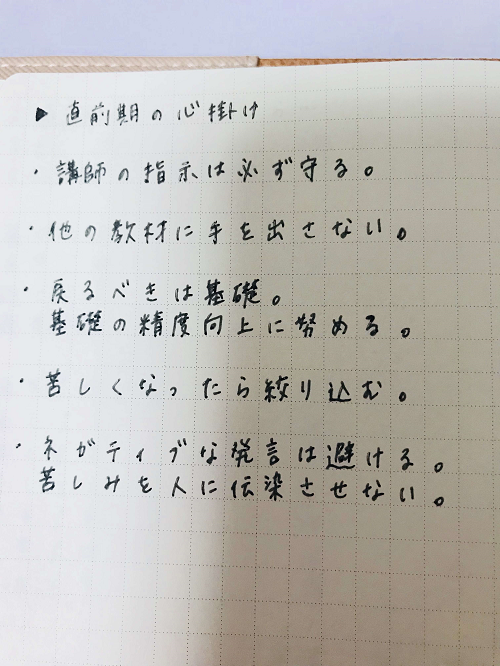 ▶ 直前期の心掛け
・講師の指示は必ず守る。
・他の教材に手を出さない。
・戻るべきは基礎。
基礎の精度向上に努める。
・苦しくなったら絞り込む。
・ネガティブな発言は避ける。
苦しみを人に伝染させない。